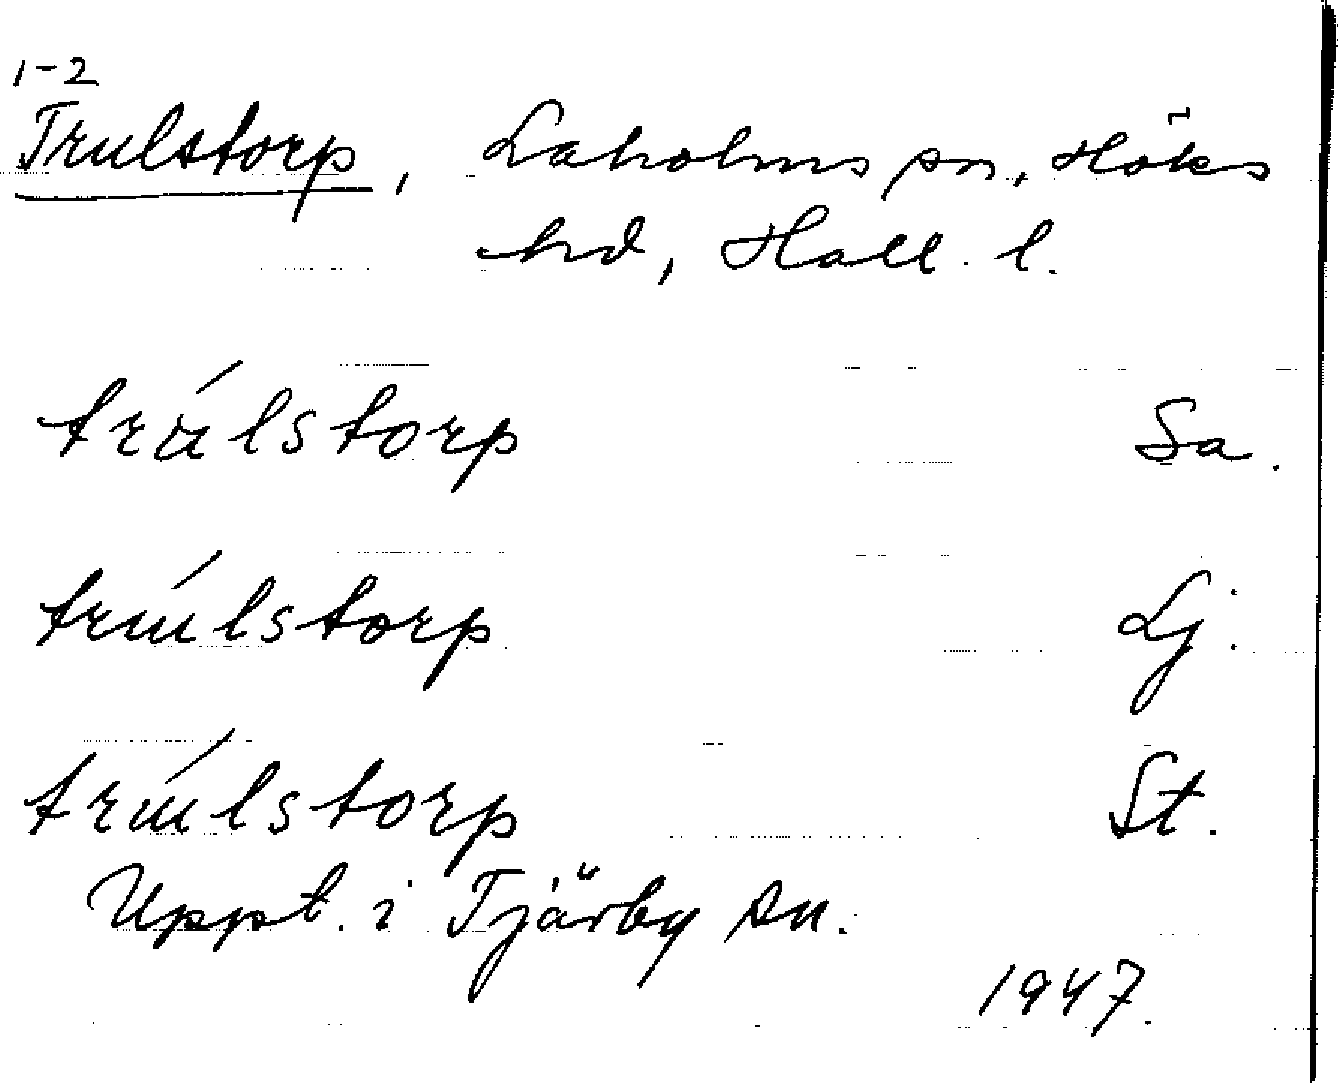 1-2
Trulstorp, Laholms sn, Höks
hd, Hall. l.
trúlstorp Sa.
trúlstorp Lj.
trúlstorp St.
Uppt. i Tjärby sn.
1947.